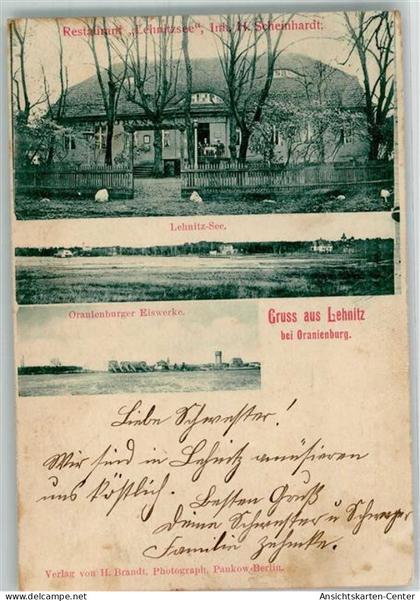 Restaurant „Lehnitzsee", Inh. H. Scheinhardt.
Lehnitz-See.
Oranienburger Eiswerke.
Gruss aus Lehnitz
bei Oranienburg.
Liebe Schwester!
Wir sind in Lehnitz amüsieren
uns köstlich. Besten Gruß
Deine Schwester u Schwager
Familie Zehmke.
Verlag von H. Brandt, Photograph, Pankow-Berlin.
Ansichtskarten-Center